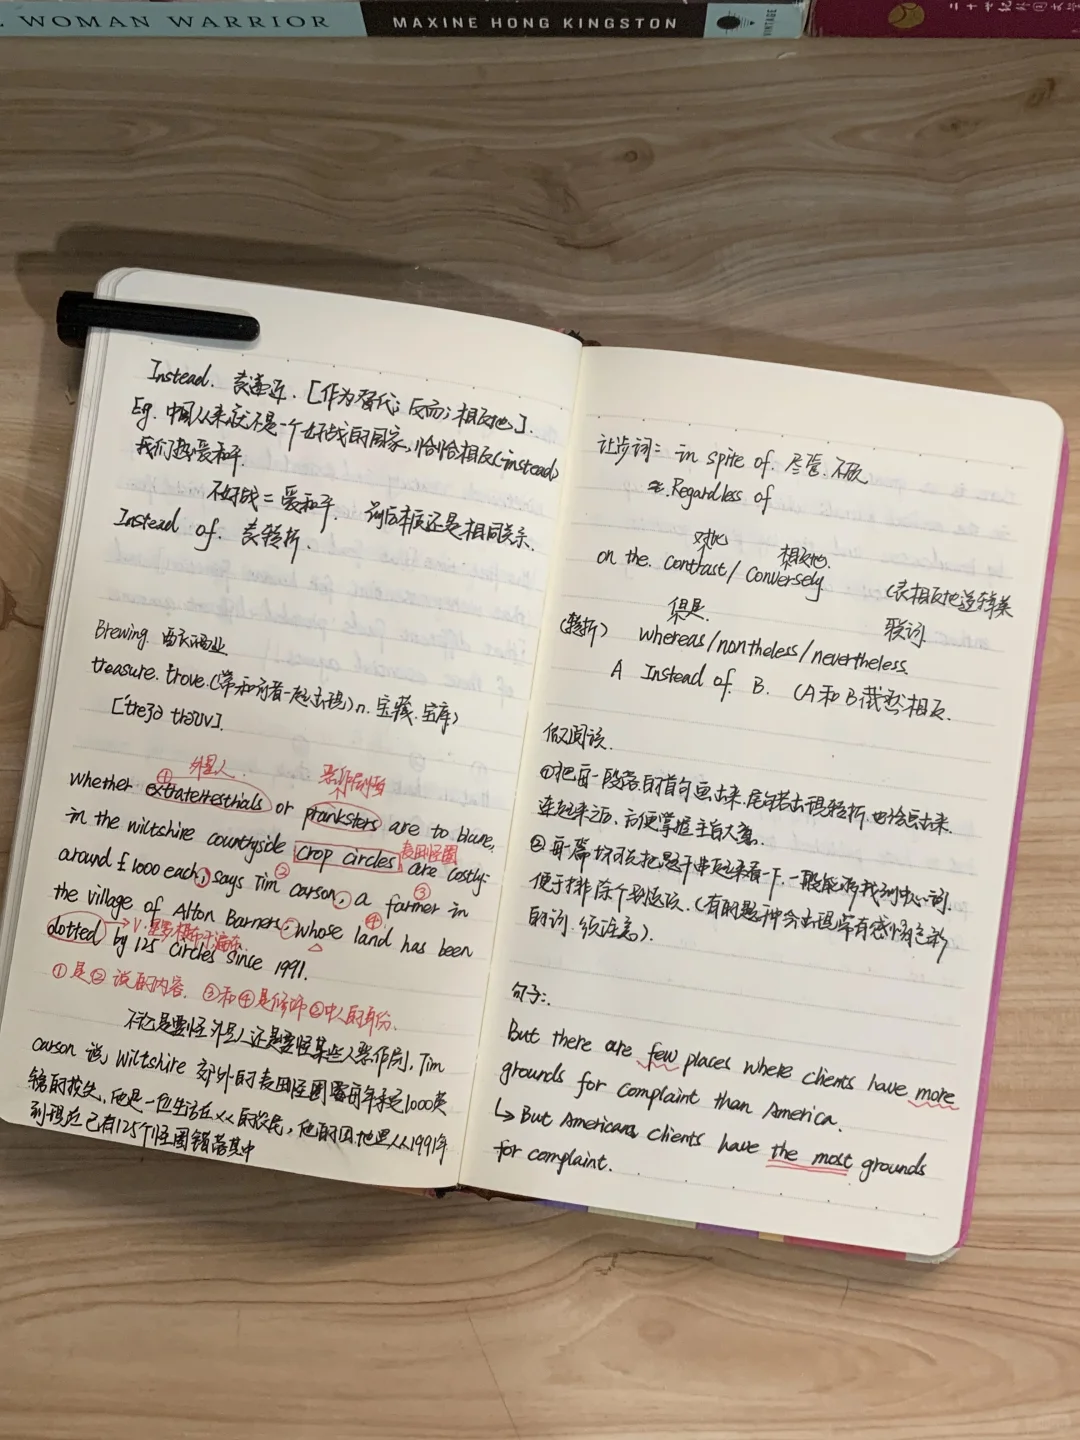 WOMAN WARRIOR
MAXINE HONG KINGSTON
VINTAGE
二十世纪外国文学
Instead. 表递近. [作为替代; 反而; 相反地].
Eg. 中国从来就不是一个好战的国家, 恰恰相反(instead)
我们热爱和平.
不好战 = 爱和平. 前后本质还是相同关系.
Instead of. 表转折.
Brewing. 酿酒业
treasure. trove.(常和前者一起出现) n. 宝藏. 宝库)
[treʒə trəʊv].
外星人. 恶作剧者
whether extraterrestrials or pranksters are to blame,
in the wiltshire countryside crop circles are costly:
麦田怪圈
around £1000 each, ① says Tim ② carson, a farmer ③ in
the village of Alton Barners, ④ whose land has been
dotted by 125 circles since 1991.
①是②说的内容. ③和④是修饰②中人的身份.
不论是要怪外星人还是要怪某些人恶作剧, Tim
carson 说, Wiltshire 郊外的麦田怪圈需每年承受1000英
镑的损失, 他是一位生活在××的农民, 他的田地里从1991年
到现在已有125个怪圈镶落其中
让步词: in spite of. 尽管. 不顾
≈. Regardless of
对比 相反地.
on the. contrast / conversely (表相反地逻辑关
联词
但是.
(转折) whereas/nontheless/nevertheless.
A Instead of. B. (A和B截然相反.
做阅读.
①把每一段落的首句画出来, 尾句若出现转折, 也给画出来.
连起来之后, 方便掌握主旨大意.
②每一篇 可先把题干串起来看一下, 一般能够找到中心词.
便于排除个别选项. (有的题干种会出现带有感情色彩
的词. 须注意).
句子:.
But there are few places where clients have more
grounds for complaint than America.
↳ But American clients have the most grounds
for complaint.